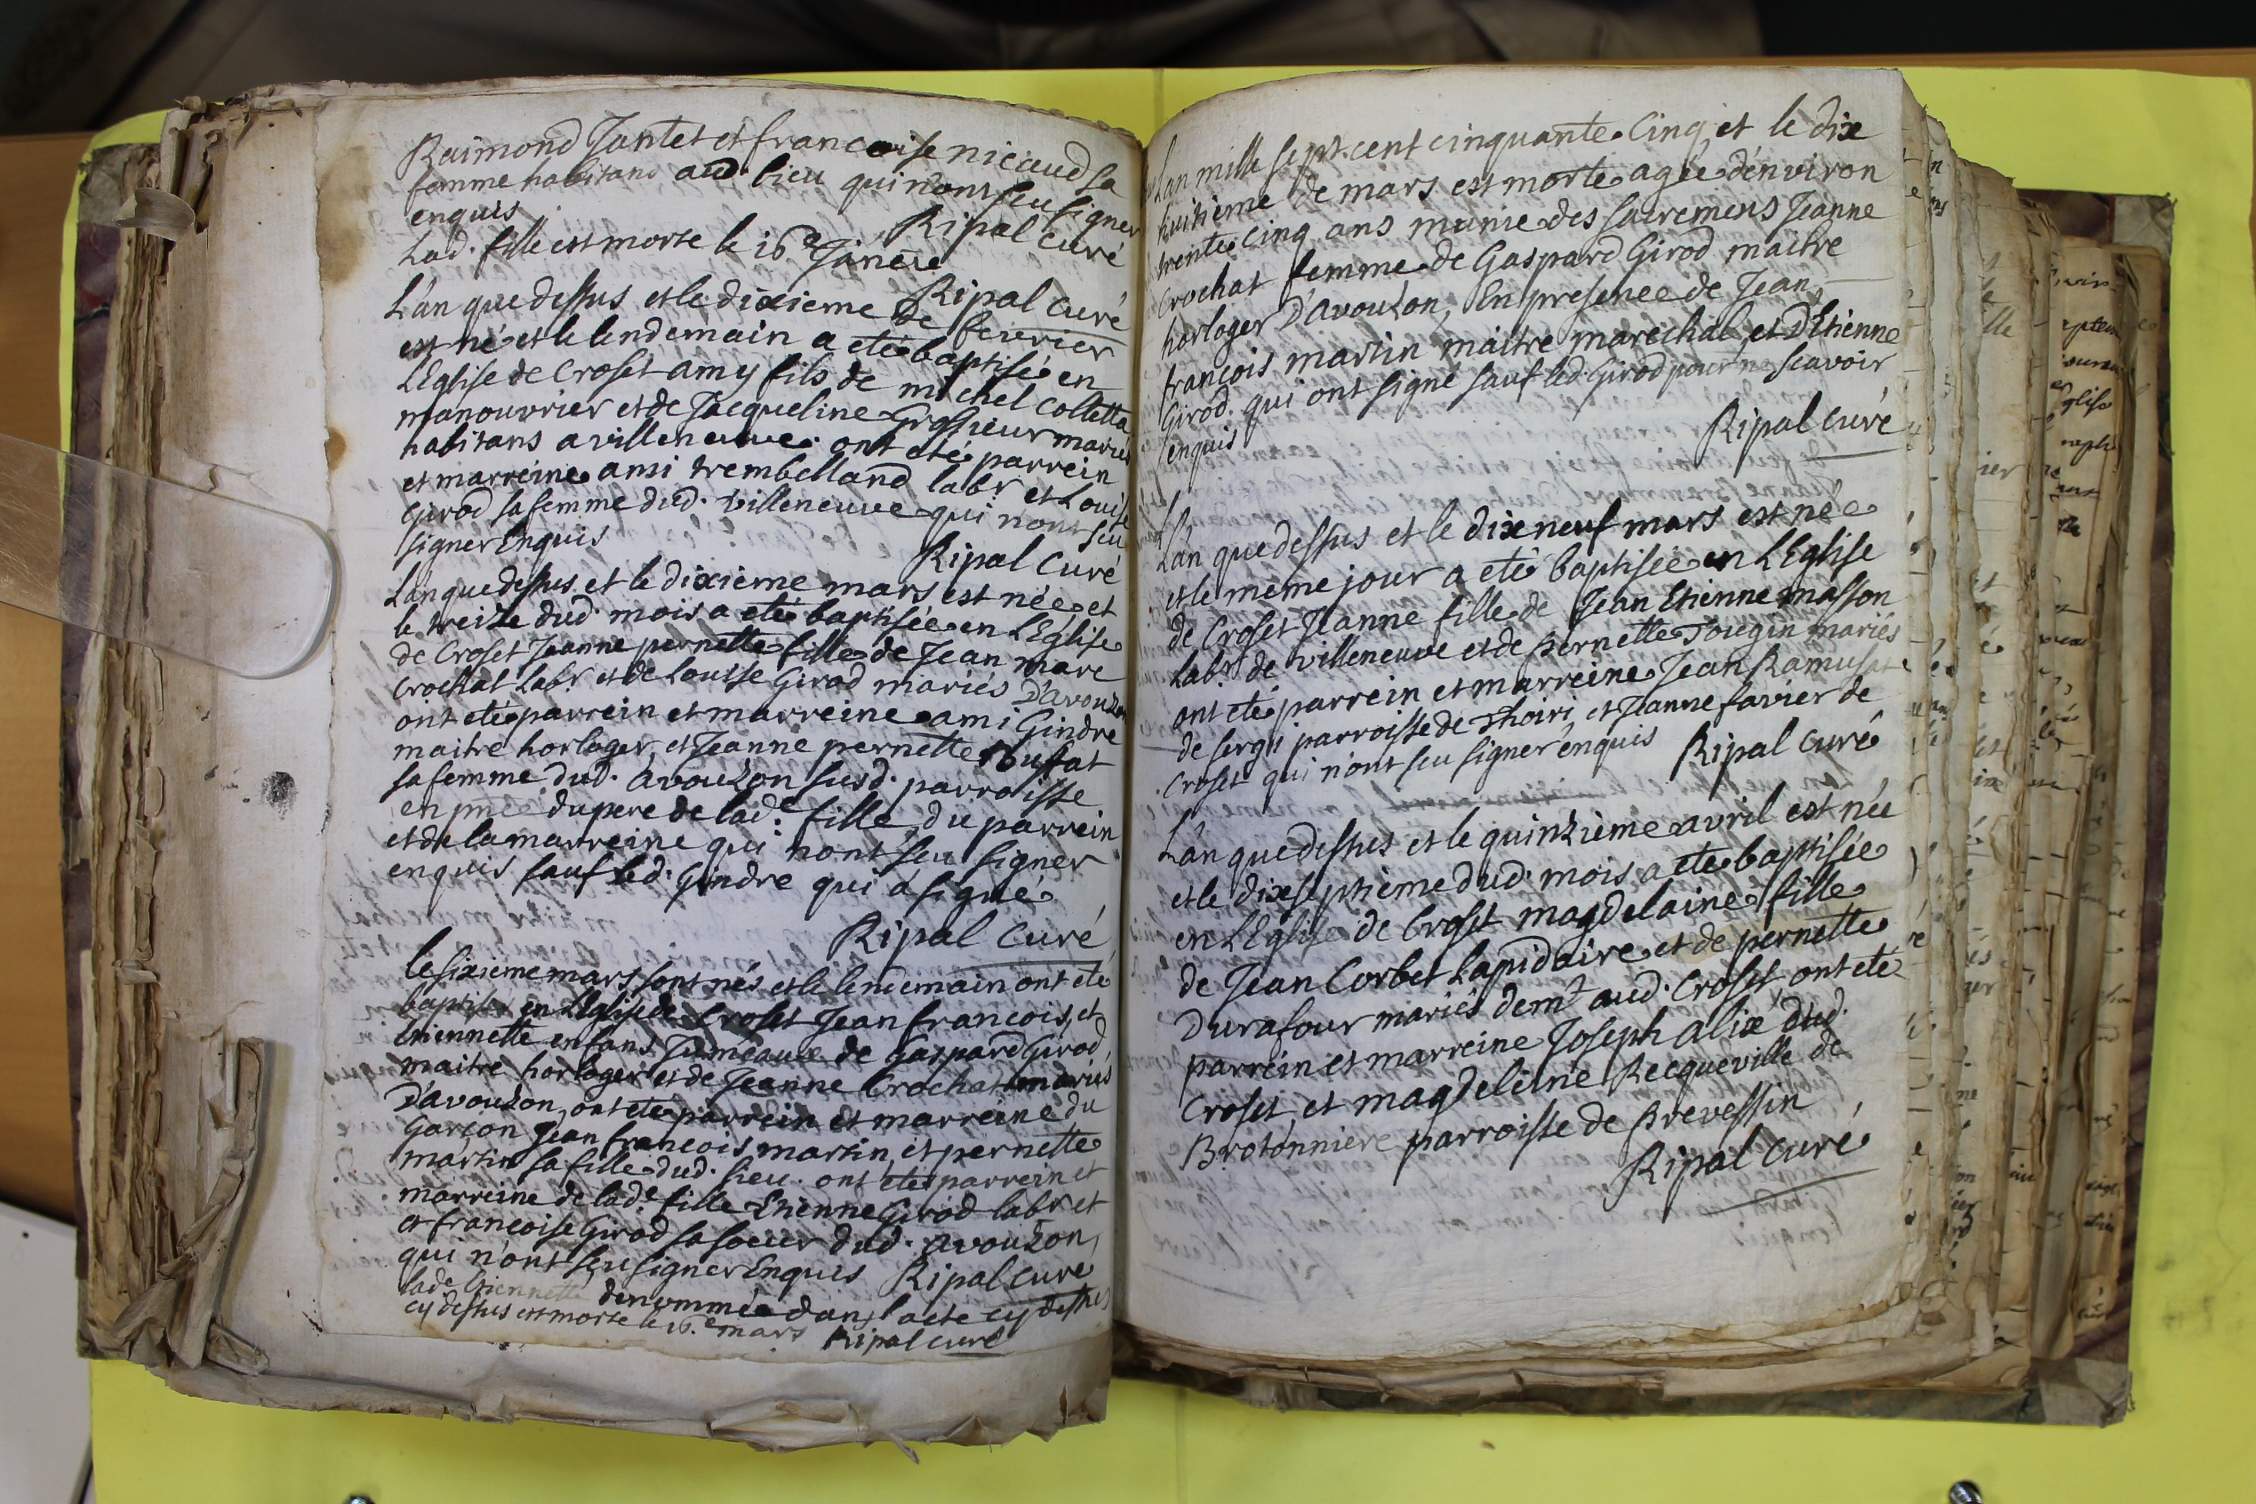 Raimond Jantet et francoise nicoud sa
femme habitans aud. lieu qui n'ont seu signer
enquis Ripal curé
Lad. fille est morte le 16e Janvier
Ripal curé
L'an que dessus et le dixieme de fevrier
est né et le lendemain a eté baptisé en
L'Eglise de Croset amy fils de michel Colletta
manouvrier et de Jacqueline Grosieur mariés
habitans a villeneuve. ont eté parrein
et marreine ami trembelland labr. et Louise
Girod sa femme dud. villeneuve qui n'ont seu
signer Enquis
Ripal curé
L'an que dessus et le dixième mars est née et
le treize dud. mois a eté baptisée en L'Eglise
de Croset Jeanne pernette fille de Jean marc
Crochat Labr. et de Louise Girod mariés D'avouzon
ont eté parrein et marreine ami Gindre
maitre horloger et Jeanne pernette Buffat
sa femme dud. avouzon susd. parroisse
en pnce du pere de lade. fille, du parrein
et de la marreine qui n'ont seu signer
enquis sauf led. Gindre qui a signé
Ripal curé
le sixieme mars sont nés et le lendemain ont eté
baptisés en L'Eglise de Croset Jean francois, et
Etiennette enfans Jumeaux de Gaspard Girod
maitre horloger et de Jeanne Crochat mariés
D'avouzon, ont eté parrein et marreine du
Garçon Jean francois martin et pernette
martin sa fille dud. lieu. ont eté parrein et
marreine de lade. fille Etienne Girod labr et
et francoise Girod sa soeur dud. avouzon,
qui n'ont seu signer Enquis Ripal curé
lade. Etiennette denommée dans l'acte cy dessus
cy dessus est morte le 16.e mars Ripal curé
L'an mille sept cent cinquante Cinq, et le dix
huitième de mars est morte agée d'environ
trente cinq ans munie des sacremens Jeanne
Crochat femme de Gaspard Girod maitre
horloger D'avouzon, En presence de Jean
françois martin maitre marechal, et D'Etienne
Girod. qui ont signé sauf led. Girod pour ne scavoir
enquis
Ripal curé
L'an que dessus et le dix neuf mars est née
et le même jour a eté baptisée en L'Eglise
de Croset Jeanne fille de Jean Etienne masson
Labr. de villeneuve et de pernette Tougin mariés
ont eté parrein et marreine Jean Ramusat
de sergi parroisse de Thoiri, et Jeanne favier de
Croset qui n'ont seu signer enquis Ripal curé
L'an que dessus et le quinzième avril est née
et le dix septième dud. mois a eté baptisée
en L'Eglise de Croset magdelaine fille
de Jean Corbet Lapidaire et de pernette
Durafour mariés demt. aud. Croset, ont eté
parrein et marreine Joseph alix dud.
Croset et magdeleine Recqueville de
Brotonniere parroisse de Brevessin
Ripal curé